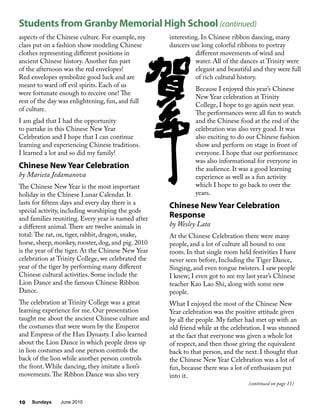 Students from Granby Memorial High School (continued)
aspects of the Chinese culture. For example, my
class put on a fashion show modeling Chinese
clothes representing different positions in
ancient Chinese history. Another fun part
of the afternoon was the red envelopes!
Red envelopes symbolize good luck and are
meant to ward off evil spirits. Each of us
were fortunate enough to receive one! The
rest of the day was enlightening, fun, and full
of culture.
I am glad that I had the opportunity
to partake in this Chinese New Year
Celebration and I hope that I can continue
learning and experiencing Chinese traditions.
I learned a lot and so did my family!
Chinese New Year Celebration
by Marieta Jedamanova
The Chinese New Year is the most important
holiday in the Chinese Lunar Calendar. It
lasts for fifteen days and every day there is a
special activity, including worshiping the gods
and families reuniting. Every year is named after
a different animal. There are twelve animals in
total: The rat, ox, tiger, rabbit, dragon, snake,
horse, sheep, monkey, rooster, dog, and pig. 2010
is the year of the tiger. At the Chinese New Year
celebration at Trinity College, we celebrated the
year of the tiger by performing many different
Chinese cultural activities. Some include the
Lion Dance and the famous Chinese Ribbon
Dance.
The celebration at Trinity College was a great
learning experience for me. Our presentation
taught me about the ancient Chinese culture and
the costumes that were worn by the Emperor
and Empress of the Han Dynasty. I also learned
about the Lion Dance in which people dress up
in lion costumes and one person controls the
back of the lion while another person controls
the front. While dancing, they imitate a lion's
movements. The Ribbon Dance was also very
interesting. In Chinese ribbon dancing, many
dancers use long colorful ribbons to portray
different movements of wind and
water. All of the dancers at Trinity were
elegant and beautiful and they were full
of rich cultural history.
Because I enjoyed this year's Chinese
New Year celebration at Trinity
College, I hope to go again next year.
The performances were all fun to watch
and the Chinese food at the end of the
celebration was also very good. It was
also exciting to do our Chinese fashion
show and perform on stage in front of
everyone. I hope that our performance
was also informational for everyone in
the audience. It was a good learning
experience as well as a fun activity
which I hope to go back to over the
years.
賀年
Chinese New Year Celebration
Response
by Wesley Lata
At the Chinese Celebration there were many
people, and a lot of culture all bound to one
room. In that single room held festivities I have
never seen before, Including the Tiger Dance,
Singing, and even tongue twisters. I saw people
I knew; I even got to see my last year's Chinese
teacher Kao Lao Shi, along with some new
people.
What I enjoyed the most of the Chinese New
Year celebration was the positive attitude given
by all the people. My father had met up with an
old friend while at the celebration. I was stunned
at the fact that everyone was given a whole lot
of respect, and then those giving the equivalent
back to that person, and the next. I thought that
the Chinese New Year Celebration was a lot of
fun, because there was a lot of enthusiasm put
into it.
(continued on page 11)
10 Sundays June 2010